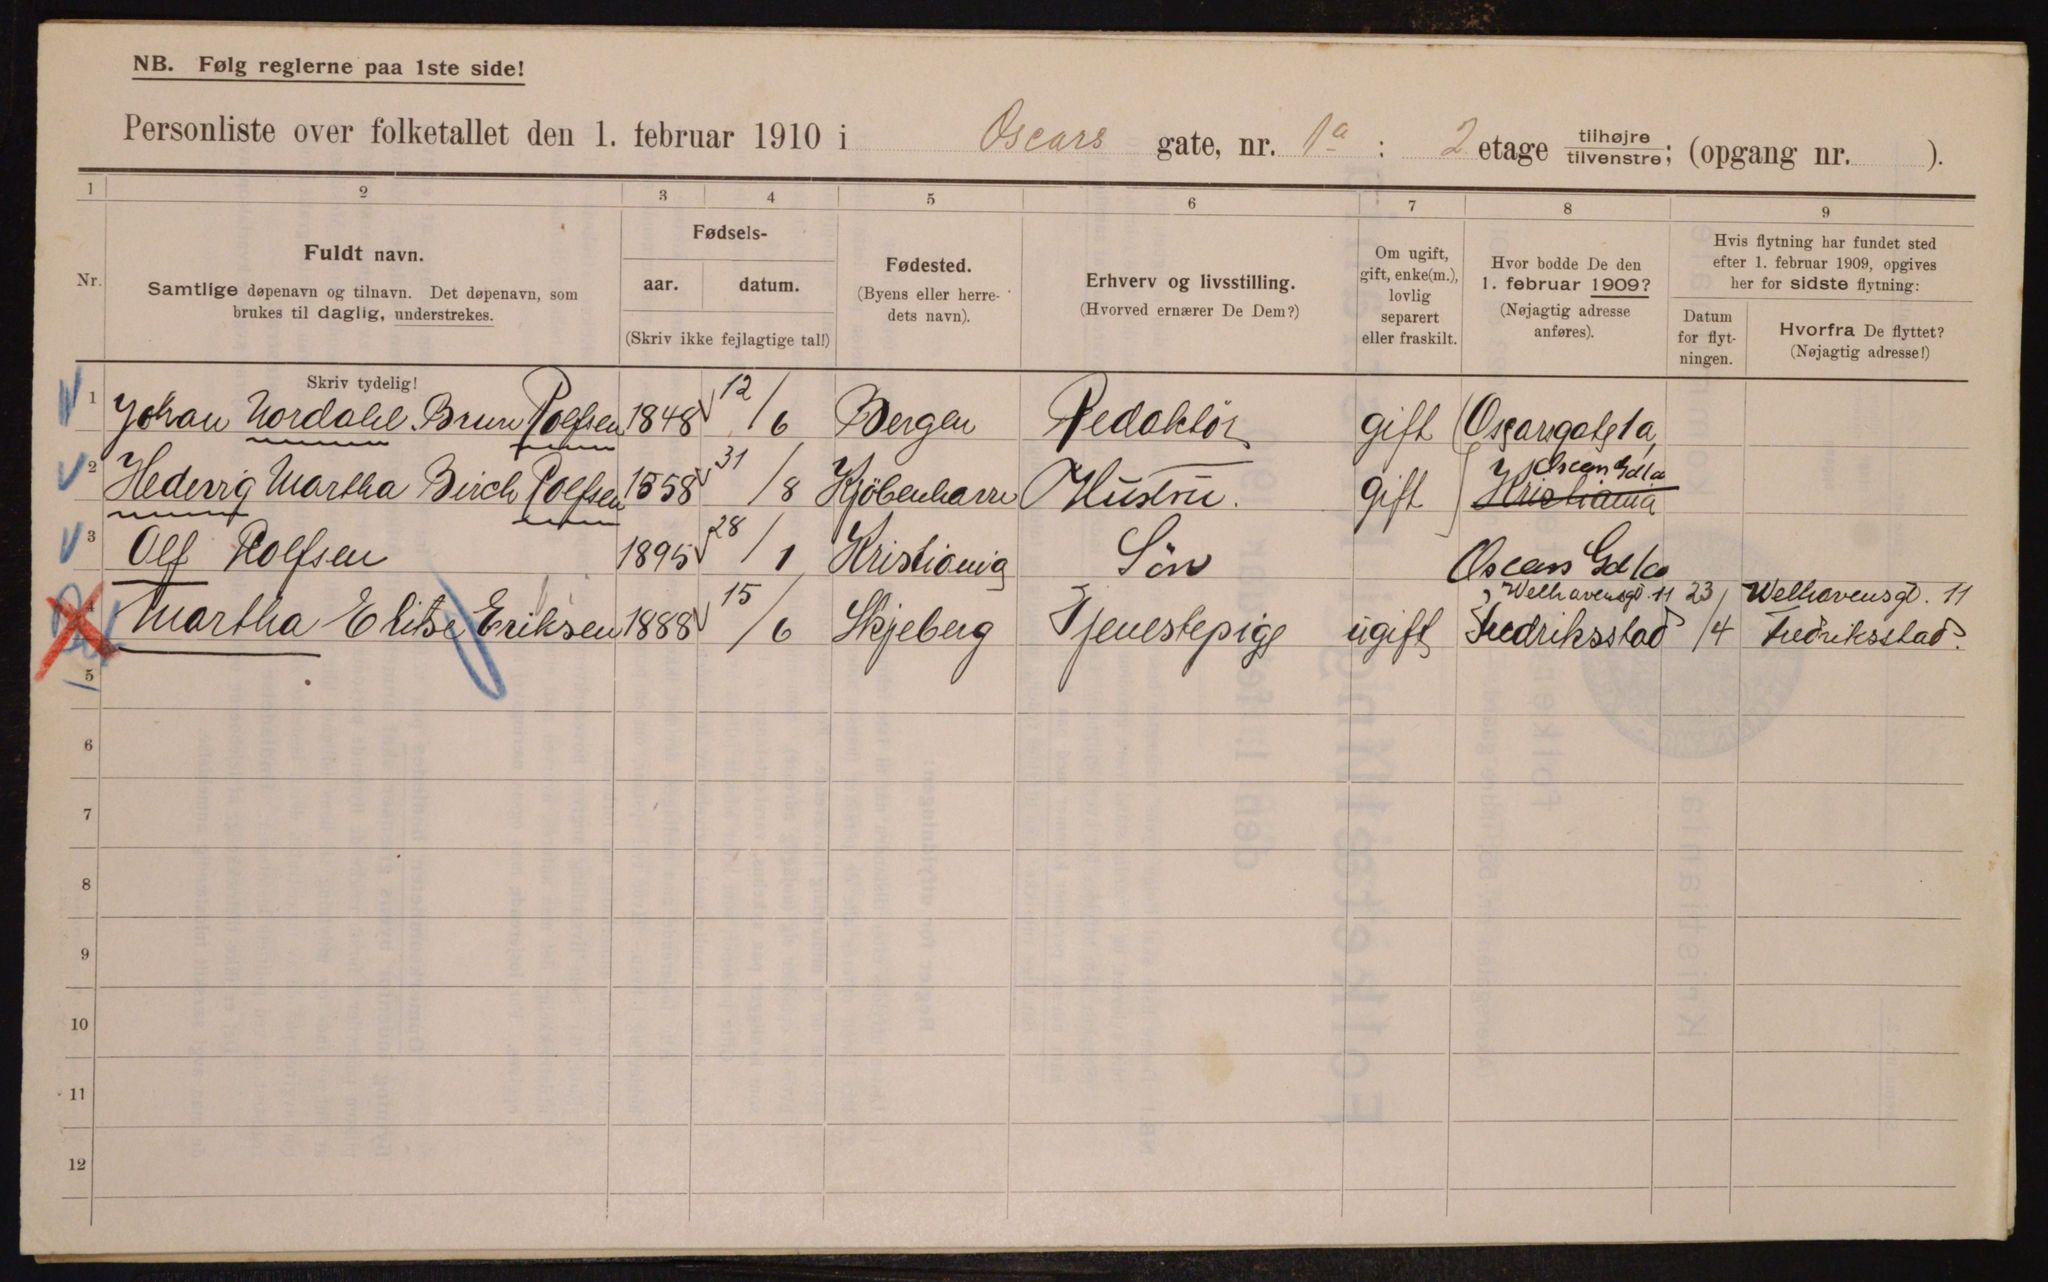 NB. Følg reglerne paa 1ste side!
Personliste over folketallet den 1. februar 1910 i Oscars gate, nr. 1a : 2 etage tilhøjre/tilvenstre; (opgang nr. ).
1 2 3 4 5 6 7 8 9
Nr.
Fuldt navn.
Samtlige døpenavn og tilnavn. Det døpenavn, som
brukes til daglig, understrekes.
Skriv tydelig!
Fødsels-
aar. datum.
(Skriv ikke fejlagtige tal!)
Fødested.
(Byens eller herre-
dets navn).
Erhverv og livsstilling.
(Hvorved ernærer De Dem?)
Om ugift,
gift, enke(m.),
lovlig
separert
eller fraskilt.
Hvor bodde De den
1. februar 1909?
(Nøjagtig adresse
anføres).
Hvis flytning har fundet sted
efter 1. februar 1909, opgives
her for sidste flytning:
Datum
for flyt-
ningen.
Hvorfra De flyttet?
(Nøjagtig adresse!)
1 Johan Nordahl Brun Rolfsen 1848 12/6 Bergen Redaktör gift Oscarsgate 1a
2 Hedevig Martha Birch Rolfsen 1858 31/8 Kjöbenhavn Hustru. gift Oscars Gd 1a
Kristiania
3 Olf Rolfsen 1895 28/1 Kristiania Sön Oscars Gd 1a
4 Martha Elise Eriksen 1888 15/6 Skjeberg Tjenestepige ugift Welhavensgt. 11 Fredriksstad 23/4 Welhavensgt. 11 Fredriksstad.
5
6
7
8
9
10
11
12